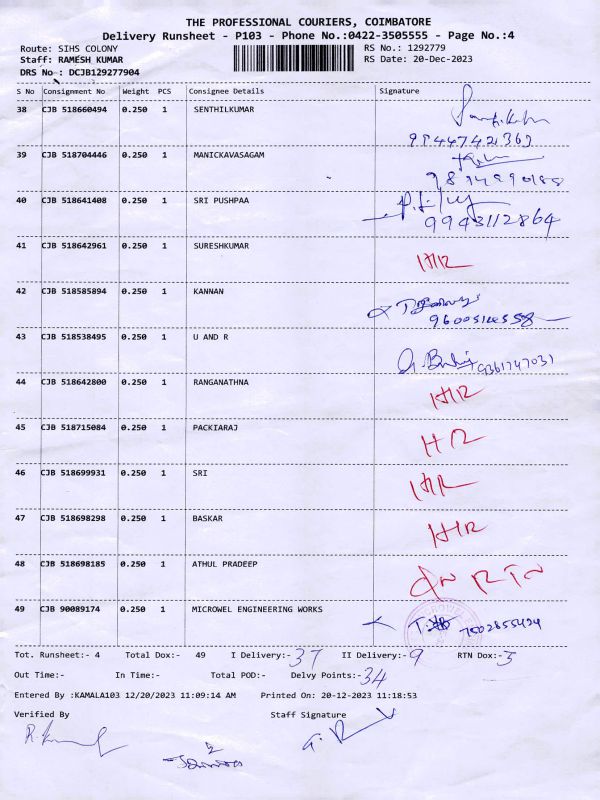 THE PROFESSIONAL COURIERS, COIMBATORE
Delivery Runsheet - P103 - Phone No.:0422-3505555 - Page No.:4
Route: SIHS COLONY RS No.: 1292779
Staff: RAMESH KUMAR RS Date: 20-Dec-2023
DRS No : DCJB129277904
S No Consignment No Weight PCS Consignee Details Signature
38 CJB 518660494 0.250 1 SENTHILKUMAR
9944742363
39 CJB 518704446 0.250 1 MANICKAVASAGAM
40 CJB 518641408 0.250 1 SRI PUSHPAA
9943112864
41 CJB 518642961 0.250 1 SURESHKUMAR H/R
42 CJB 518585894 0.250 1 KANNAN
43 CJB 518538495 0.250 1 U AND R
9361747031
44 CJB 518642800 0.250 1 RANGANATHNA H/R
45 CJB 518715084 0.250 1 PACKIARAJ H R
46 CJB 518699931 0.250 1 SRI H/R
47 CJB 518698298 0.250 1 BASKAR H/R
48 CJB 518698185 0.250 1 ATHUL PRADEEP
49 CJB 90089174 0.250 1 MICROWEL ENGINEERING WORKS 7502855424
Tot. Runsheet:- 4 Total Dox:- 49 I Delivery:- 37 II Delivery:- 9 RTN Dox:- 3
Out Time:- In Time:- Total POD:- Delvy Points:- 34
Entered By :KAMALA103 12/20/2023 11:09:14 AM Printed On: 20-12-2023 11:18:53
Verified By Staff Signature